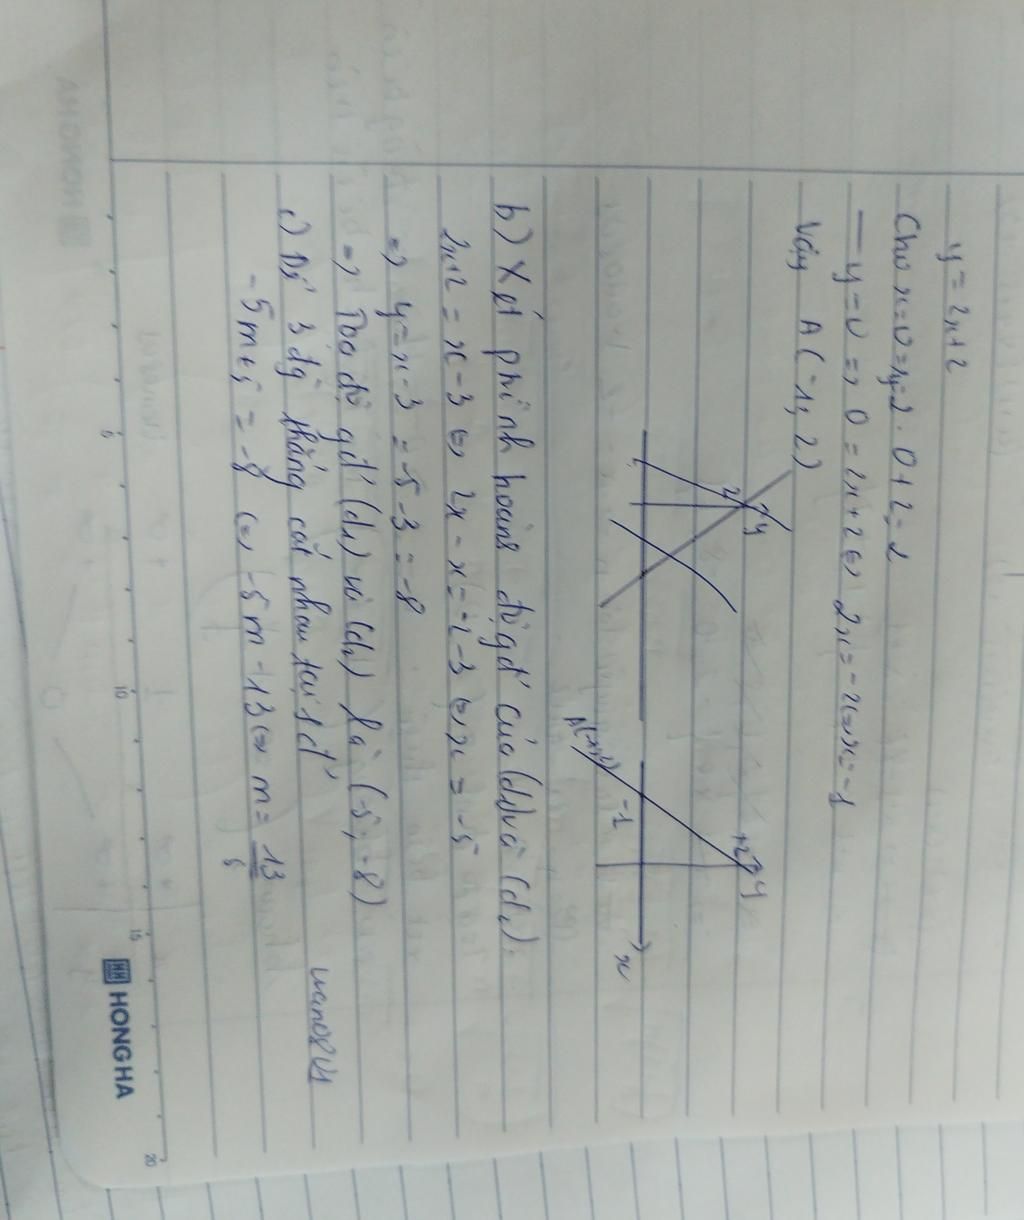 y = 2x+2
Cho x=0 => y=2.0+2=2
y=0 => 0=2x+2 <=> 2x=-2 <=> x=-1
Vậy A(-1; 2)
y
2
+2 y
-1
x
b) Xét phình hoành độ gđ của (d1) và (d2):
2x+2 = x-3 <=> 2x-x=-2-3 <=> x=-5
=> y=x-3=-5-3=-8
=> Toạ độ gđ (d1) và (d2) là (-5; -8)
c) Để 3 đg thẳng cắt nhau tại 1 đ'
= -8 <=> -5m = -13 <=> m = 13/5
5
10
15
20
HONG HA